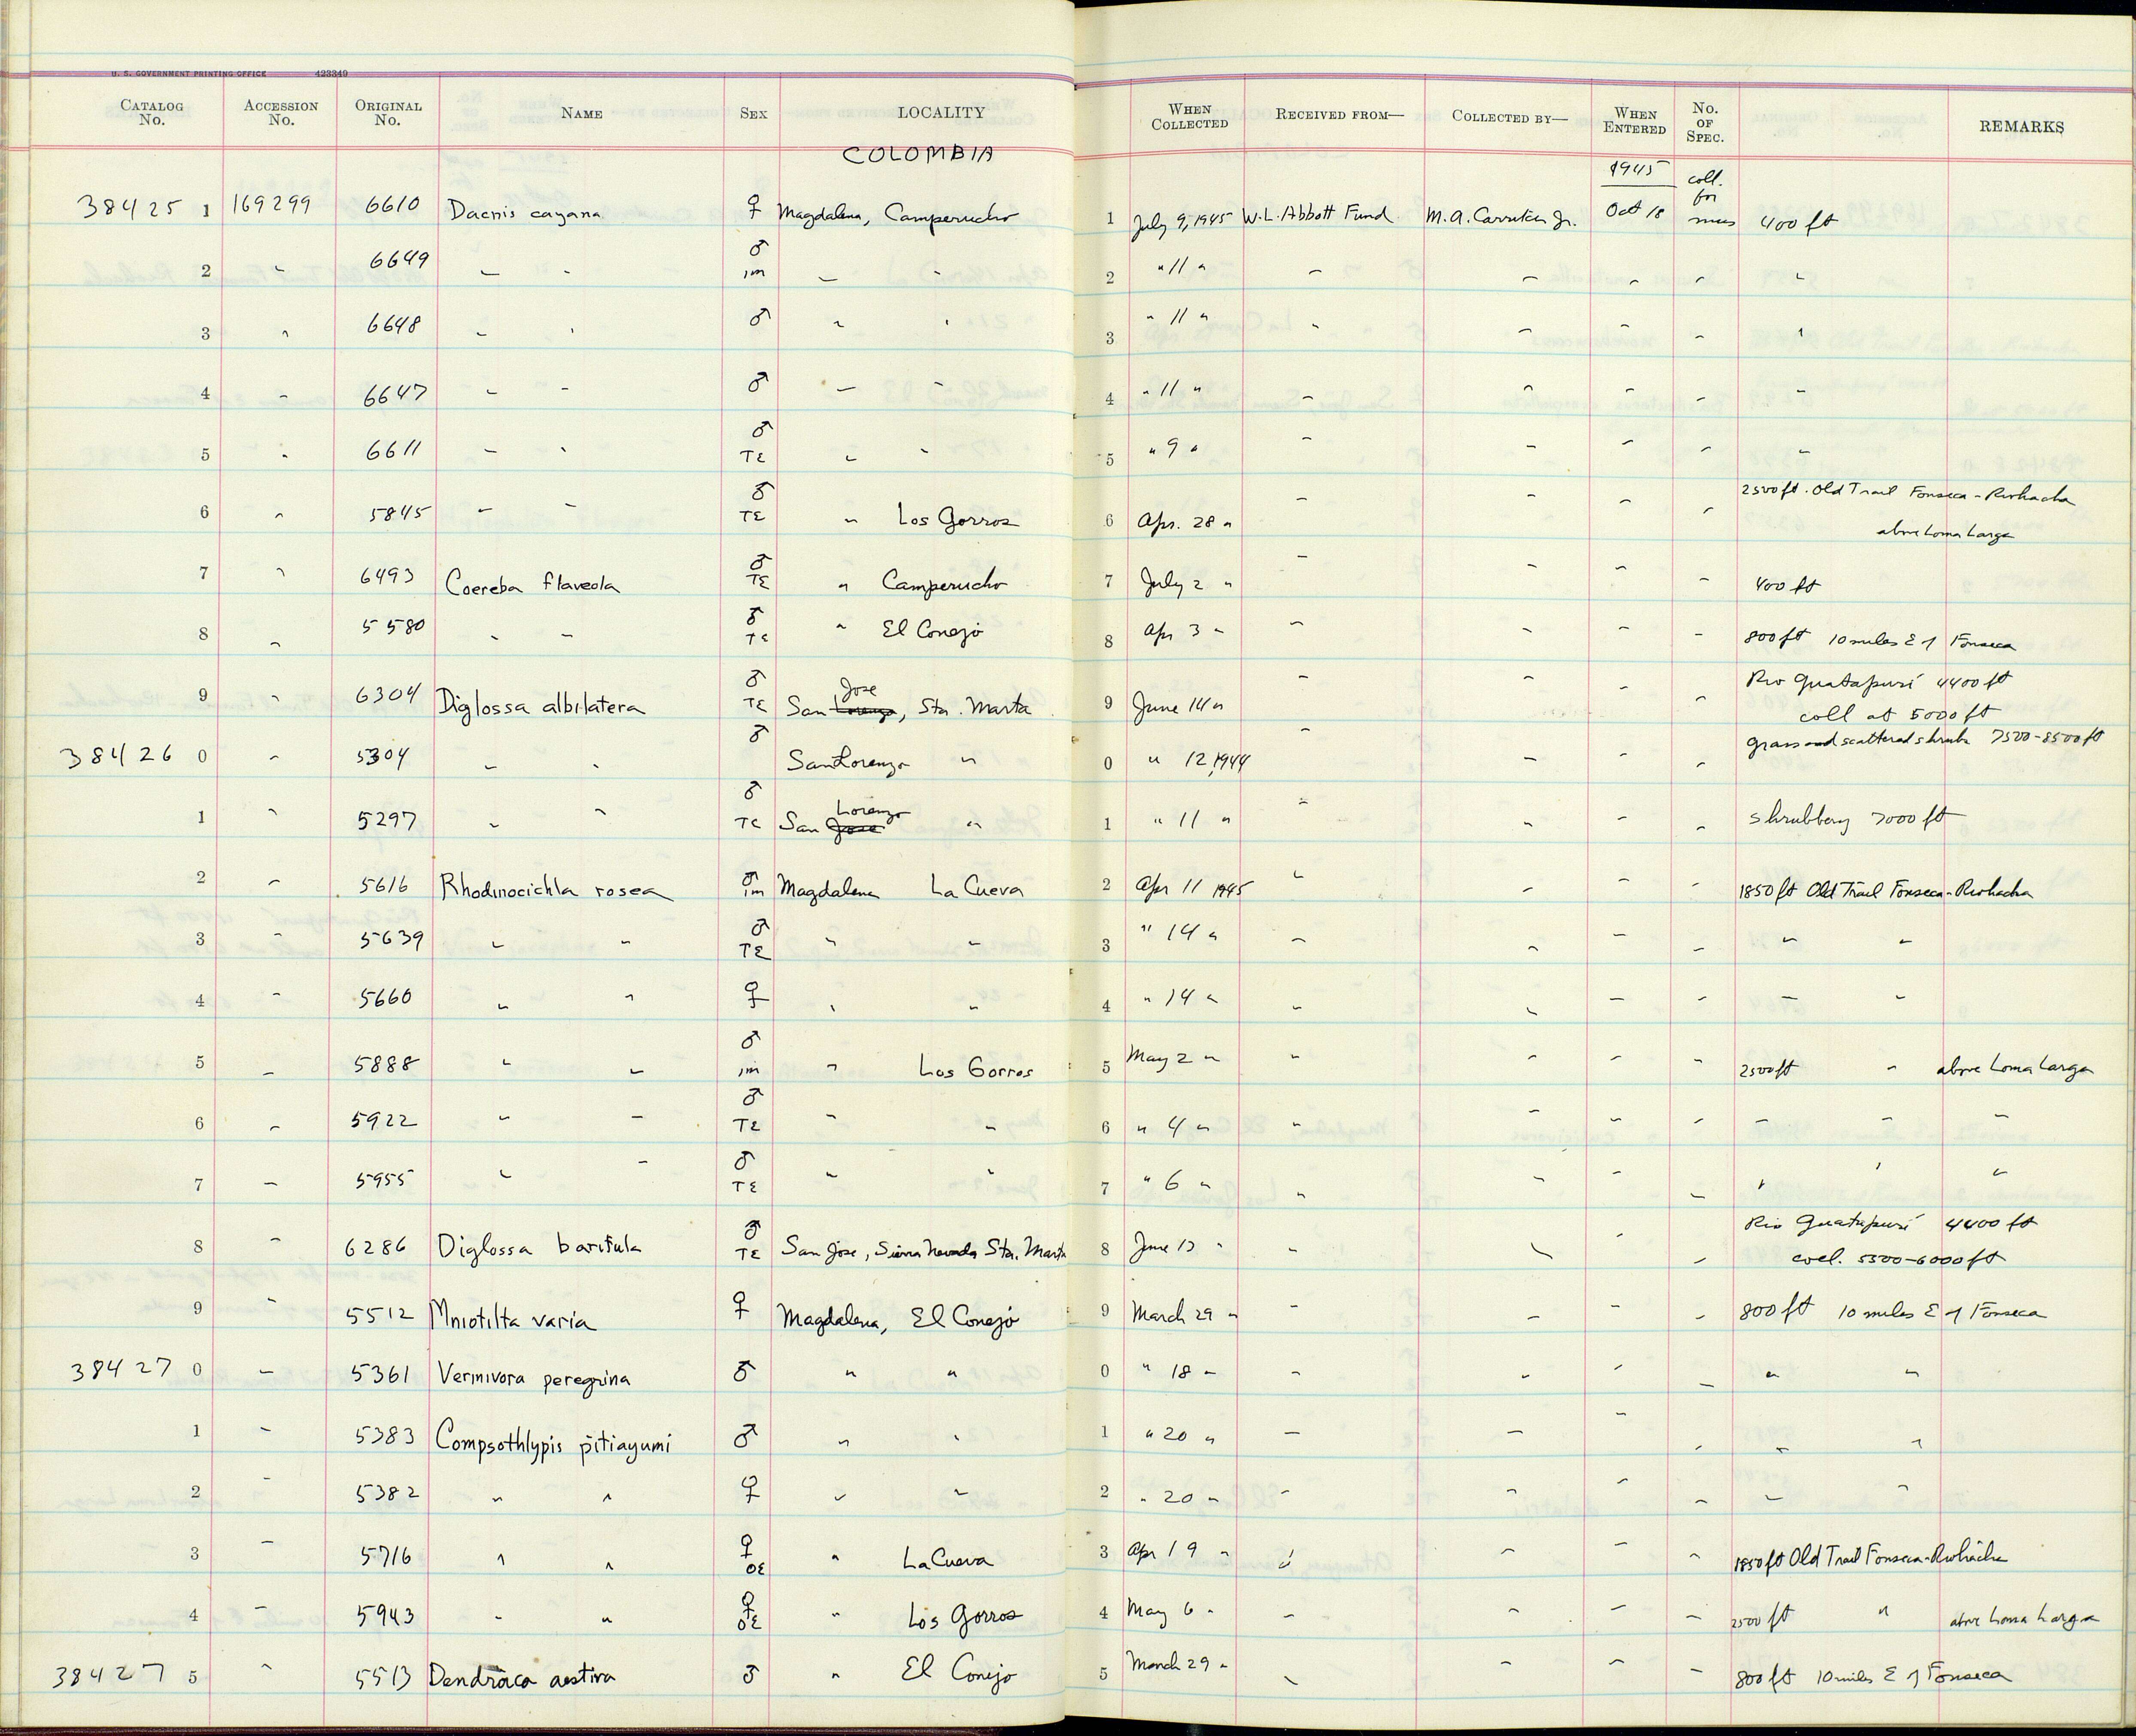 U. S. GOVERNMENT PRINTING OFFICE 423349
CATALOG No. ACCESSION No. ORIGINAL No. NAME SEX LOCALITY WHEN COLLECTED RECEIVED FROM— COLLECTED BY— WHEN ENTERED No. OF SPEC. REMARKS
COLOMBIA
1945 coll. for mus
38425 1 169299 6610 Dacnis cayana ♀ Magdalena, Camperucho 1 July 9, 1945 W.L. Abbott Fund M.A. Carriker Jr. Oct 18 400 ft
2 " 6649 " " ♂ im " " 2 " 11 " " " " " "
3 " 6648 " " ♂ " " 3 " 11 " " " " " "
4 " 6647 " " ♂ " " 4 " 11 " " " " " "
5 " 6611 " " ♂ TE " " 5 " 9 " " " " " "
6 " 5845 " " ♂ TE " Los Gorros 6 Apr. 28 " " " " " 2500 ft. Old Trail Fonseca - Riohacha
above Loma Larga
7 " 6493 Coereba flaveola ♂ TE " Camperucho 7 July 2 " " " " " 400 ft
8 " 5580 " " ♂ TE " El Conejo 8 Apr 3 " " " " " 800 ft 10 miles E of Fonseca
9 " 6304 Diglossa albilatera ♂ TE San Lorenzo Jose, Sta. Marta 9 June 14 " " " " " Rio Guatapuri 4400 ft
coll at 5000 ft
38426 0 " 5304 " " ♂ San Lorenzo " 0 " 12, 1944 " " " " grass and scattered shrubs 7500-8500 ft
1 " 5297 " " ♂ TE San Jose Lorenzo " 1 " 11 " " " " " shrubbery 7000 ft
2 " 5616 Rhodinocichla rosea ♂ im Magdalena La Cueva 2 Apr 11 1945 " " " " 1850 ft Old Trail Fonseca-Riohacha
3 " 5639 " " ♂ TE " " 3 " 14 " " " " " " "
4 " 5660 " " ♀ " " 4 " 14 " " " " " " "
5 " 5888 " " ♂ im " Los Gorros 5 May 2 " " " " " 2500 ft " above Loma Larga
6 " 5922 " " ♂ TE " " 6 " 4 " " " " " " " "
7 " 5955 " " ♂ TE " " 7 " 6 " " " " " " " "
8 " 6286 Diglossa baritula ♂ TE San Jose, Sierra Nevada Sta. Marta 8 June 13 " " " " " Rio Guatapuri 4400 ft
coll. 5500-6000 ft
9 " 5512 Mniotilta varia ♀ Magdalena, El Conejo 9 March 29 " " " " " 800 ft 10 miles E of Fonseca
38427 0 " 5361 Vermivora peregrina ♂ " " 0 " 18 " " " " " " "
1 " 5383 Compsothlypis pitiayumi ♂ " " 1 " 20 " " " " " " "
2 " 5382 " " ♀ " " 2 " 20 " " " " " " "
3 " 5716 " " ♀ OE " La Cueva 3 Apr 19 " " " " " 1850 ft Old Trail Fonseca-Riohacha
4 " 5943 " " ♀ OE " Los Gorros 4 May 6 " " " " " 2500 ft " above Loma Larga
38427 5 " 5513 Dendroica aestiva ♂ " El Conejo 5 March 29 " " " " " 800 ft 10 miles E of Fonseca